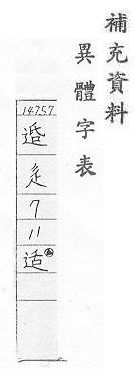 補充資料
異體字表
14757
辵
7
11
适